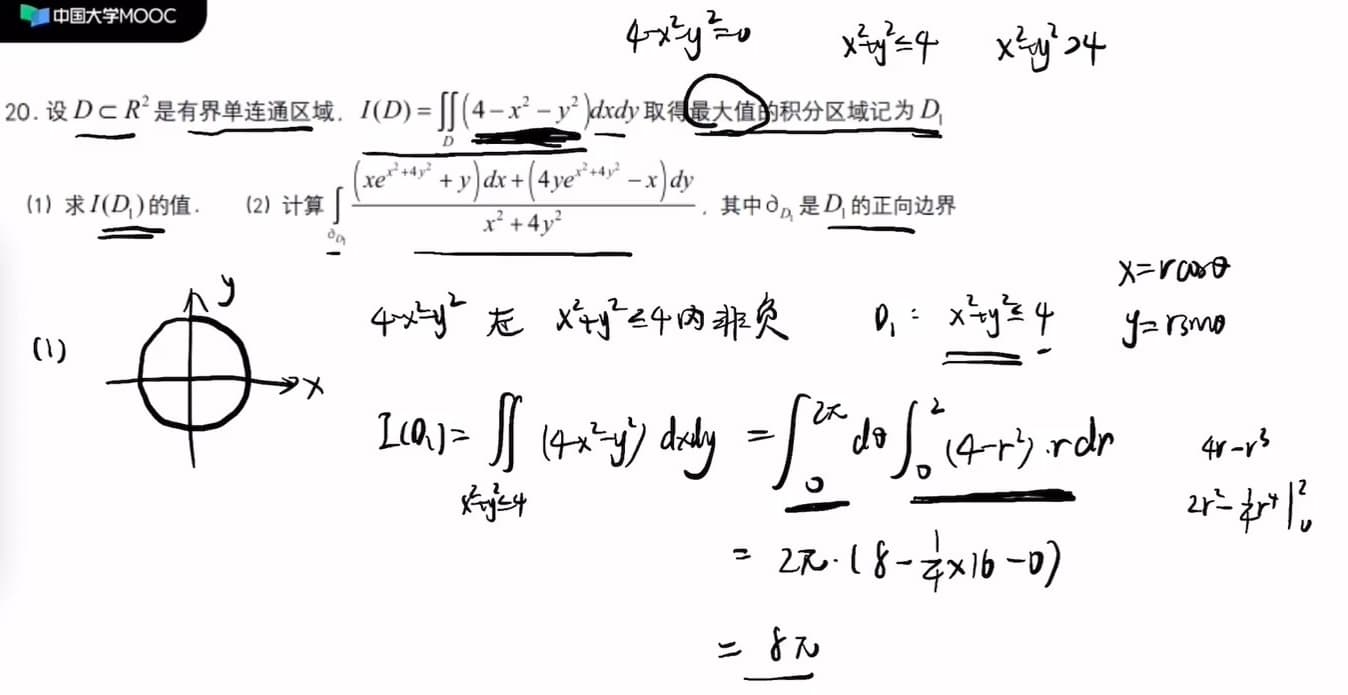 中国大学MOOC
4-x²-y²=0 x²+y²≤4 x²+y²>4
20. 设 D ⊂ R² 是有界单连通区域. I(D) = ∬_D (4 - x² - y²)dxdy 取得最大值的积分区域记为 D₁
(1) 求 I(D₁) 的值. (2) 计算 ∫_{∂D₁} \frac{(xe^{x²+4y²} + y)dx + (4ye^{x²+4y²} - x)dy}{x² + 4y²}, 其中 ∂_{D₁} 是 D₁ 的正向边界
(1)
y
x
4-x²-y² 在 x²+y²≤4内非负 D₁: x²+y²≤4
x=rcosθ
y=rsinθ
I(D₁)= ∬_{x²+y²≤4} (4-x²-y²) dxdy = ∫₀^{2π} dθ ∫₀² (4-r²)·rdr
4r-r³
2r²-¼r⁴|₀²
= 2π·(8-¼×16-0)
= 8π